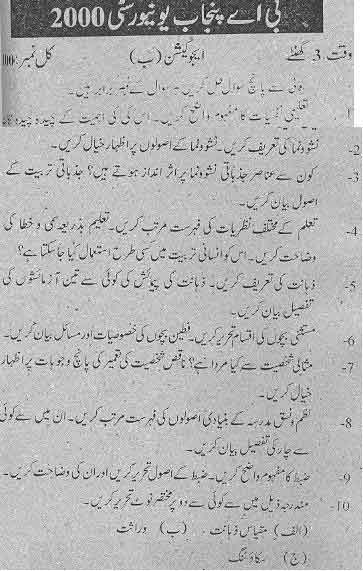 بی اے پنجاب یونیورسٹی 2000
وقت: 3 گھنٹے ایجوکیشن (ب) کل نمبر: 100
کوئی سے پانچ سوال حل کریں ہر سوال کے نمبر برابر ہیں۔
1 تعلیمی نفسیات کا مفہوم واضح کریں۔ اس کی اہمیت کے چیدہ چیدہ
2- نشوونما کی تعریف کریں۔ نشوونما کے اصولوں پر اظہار خیال کریں۔
3- کون سے عناصر جذباتی نشوونما پر اثر انداز ہوتے ہیں؟ جذباتی تربیت کے
اصول بیان کریں۔
4- تعلم کے مختلف نظریات کی فہرست مرتب کریں۔ تعلیم بذریعہ سعی و خطا کی
وضاحت کریں۔ اس کو انسانی تربیت میں کس طرح استعمال کیا جا سکتا ہے؟
5- ذہانت کی تعریف کریں۔ ذہانت کی پیمائش کی کوئی سے تین آزمائشوں کی
تفصیل بیان کریں۔
6- مستثنیٰ بچوں کی اقسام تحریر کریں۔ فطین بچوں کی خصوصیات اور مسائل بیان کریں۔
7- مثالی شخصیت سے کیا مراد ہے؟ ناقص شخصیت کی تعمیر کی پانچ وجوہات پر اظہار
خیال کریں۔
8- نظم و نسق مدرسہ کے بنیادی اصولوں کی فہرست مرتب کریں۔ ان میں سے کوئی
سے چار کی تفصیل بیان کریں۔
9- ضبط کا مفہوم واضح کریں۔ ضبط کے اصول تحریر کریں اور ان کی وضاحت کریں۔
10- مندرجہ ذیل میں سے کوئی سے دو پر مختصر نوٹ تحریر کریں۔
(الف) مقیاس ذہانت ۔ (ب) وراثت
(ج) سکاؤٹنگ